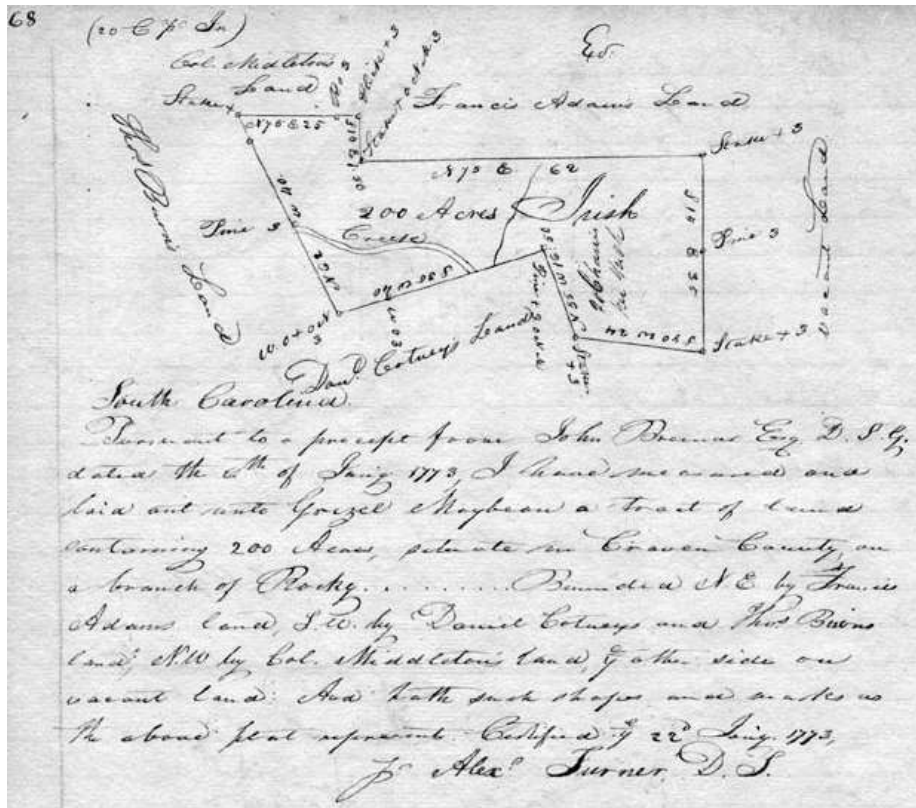 68
(20 C pr In)
Ex.
Col. Middleton's
Land
Stake +
Stake + 3
Francis Adams Land
N75 E 25
S10 E
Stake + 3
N75 E 62
Thos. Burns Land
Pine 3
N 62 W 40
200 Acres Irish
Creek
20 Chains per Inch
S10 E 35
Pine 3
Vacant Land
S30 W 40
W.O. + 3
Danl. Cotneys Land
Stake + 3
S 90 W 24
Stake + 3
South Carolina.
Pursuant to a precept from John Bremar Esq. D. S. G.
dated the 6th of Jany 1773, I have measured and
laid out unto Grizel Maybean a tract of land
containing 200 Acres, situate in Craven County on
a branch of Rocky......... Bounded N.E by Francis
Adams land, S.W. by Daniel Cotneys and Thos Burns
land, N.W by Col. Middleton's land, ye other side on
vacant land: And hath such shapes and marks as
the above plat represent. Certified ye 22d Jany. 1773,
pr Alexr Turner, D. S.